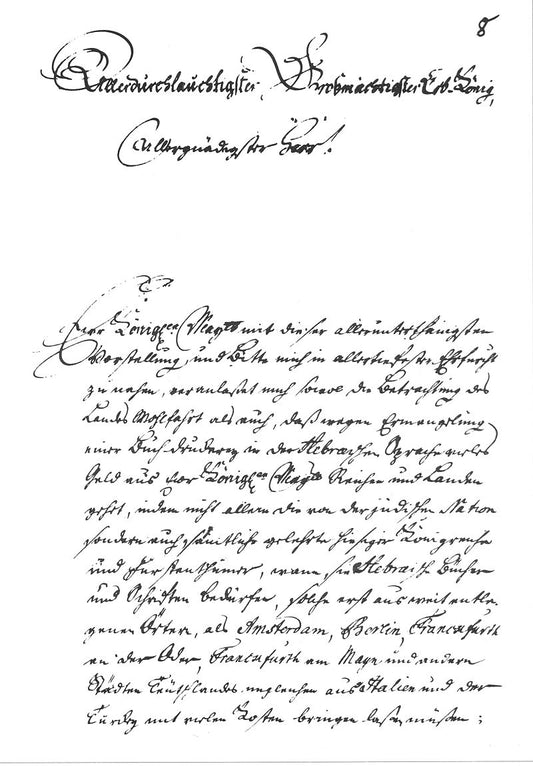 8
Allerdurchlauchtigster, Großmächtigster Erb-König,
Allergnädigster Herr!
Euer Königlen Maytt mit dieser allerunterthänigsten
Vorstellung, und Bitte mich in allertiefster Ehrfurcht
zu nahen, veranlaßet mich sowol die Betrachtung des
Landes Wohlfahrt als auch, daß wegen Ermangelung
einer Buch-druckerey in der Hebraischen Sprache vieles
Geld aus Euer Königlen Maytt Reichen und Landen
gehet, indem nicht allein die von der jüdischen Nation
sondern auch sämtliche gelehrte hiesiger Königreiche
und fürstenthümer, wann sie Hebraische Bücher
und Schriften bedürfen, solche erst aus weit entle-
genen Örtern, als Amsterdam, Berlin, Francafurth
an der Oder, Francafurth am Mayn und andern
Städten Teütschlandes ingleichen aus Italien und der
Turckey mit vielen Kosten bringen laßen müßen;